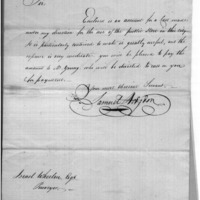 Sir,
Enclosed is an account for a Case made
under my direction for the use of the public Store in this city.
it is particularly intended to be greatly useful, and the
expense is very moderate. you will be pleased to pay the
amount to Mr Young who will be directed to call on you
for payment.
Your most obedient Servant,
Samuel Hodgdon
Israel Wheelen Esqr
Purveyor